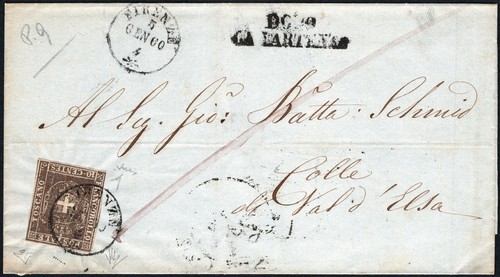 P.9
FIRENZE
5
GEN 60
4
DOPO
LA PARTENZA
Al Sig. Gio: Batta: Schmid
Colle
di Val d'Elsa
10 CENTES
TOSCANO
FRANCOBOLLO
POSTALE